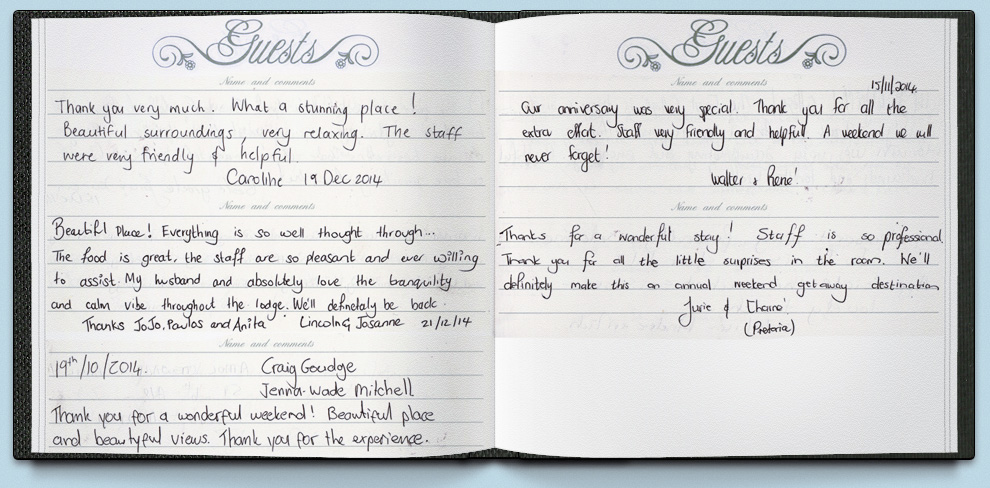 Guests
Name and comments
Thank you very much. What a stunning place!
Beautiful surroundings, very relaxing. The staff
were very friendly & helpful.
Caroline 19 Dec 2014
Name and comments
Beautifl Place! Everything is so well thought through...
The food is great, the staff are so pleasant and ever willing
to assist. My husband and absolutely love the tranquility
and calm vibe throughout the lodge. We'll definetaly be back.
Thanks JoJo, Pavlos and Anita Lincoln & Josanne 21/12/14
Name and comments
19th/10/2014. Craig Goudge
Jenna-Wade Mitchell
Thank you for a wonderful weekend! Beautiful place
and beautyful views. Thank you for the experience.
Guests
Name and comments
15/11/2014
Our anniversary was very special. Thank you for all the
extra effort. Staff very friendly and helpfull. A weekend we will
never forget!
Walter & René!
Name and comments
Thanks for a wonderful stay! Staff is so professional.
Thank you for all the little surprises in the room. We'll
definitely make this an annual weekend getaway destination
Jurie &
(Pretoria)